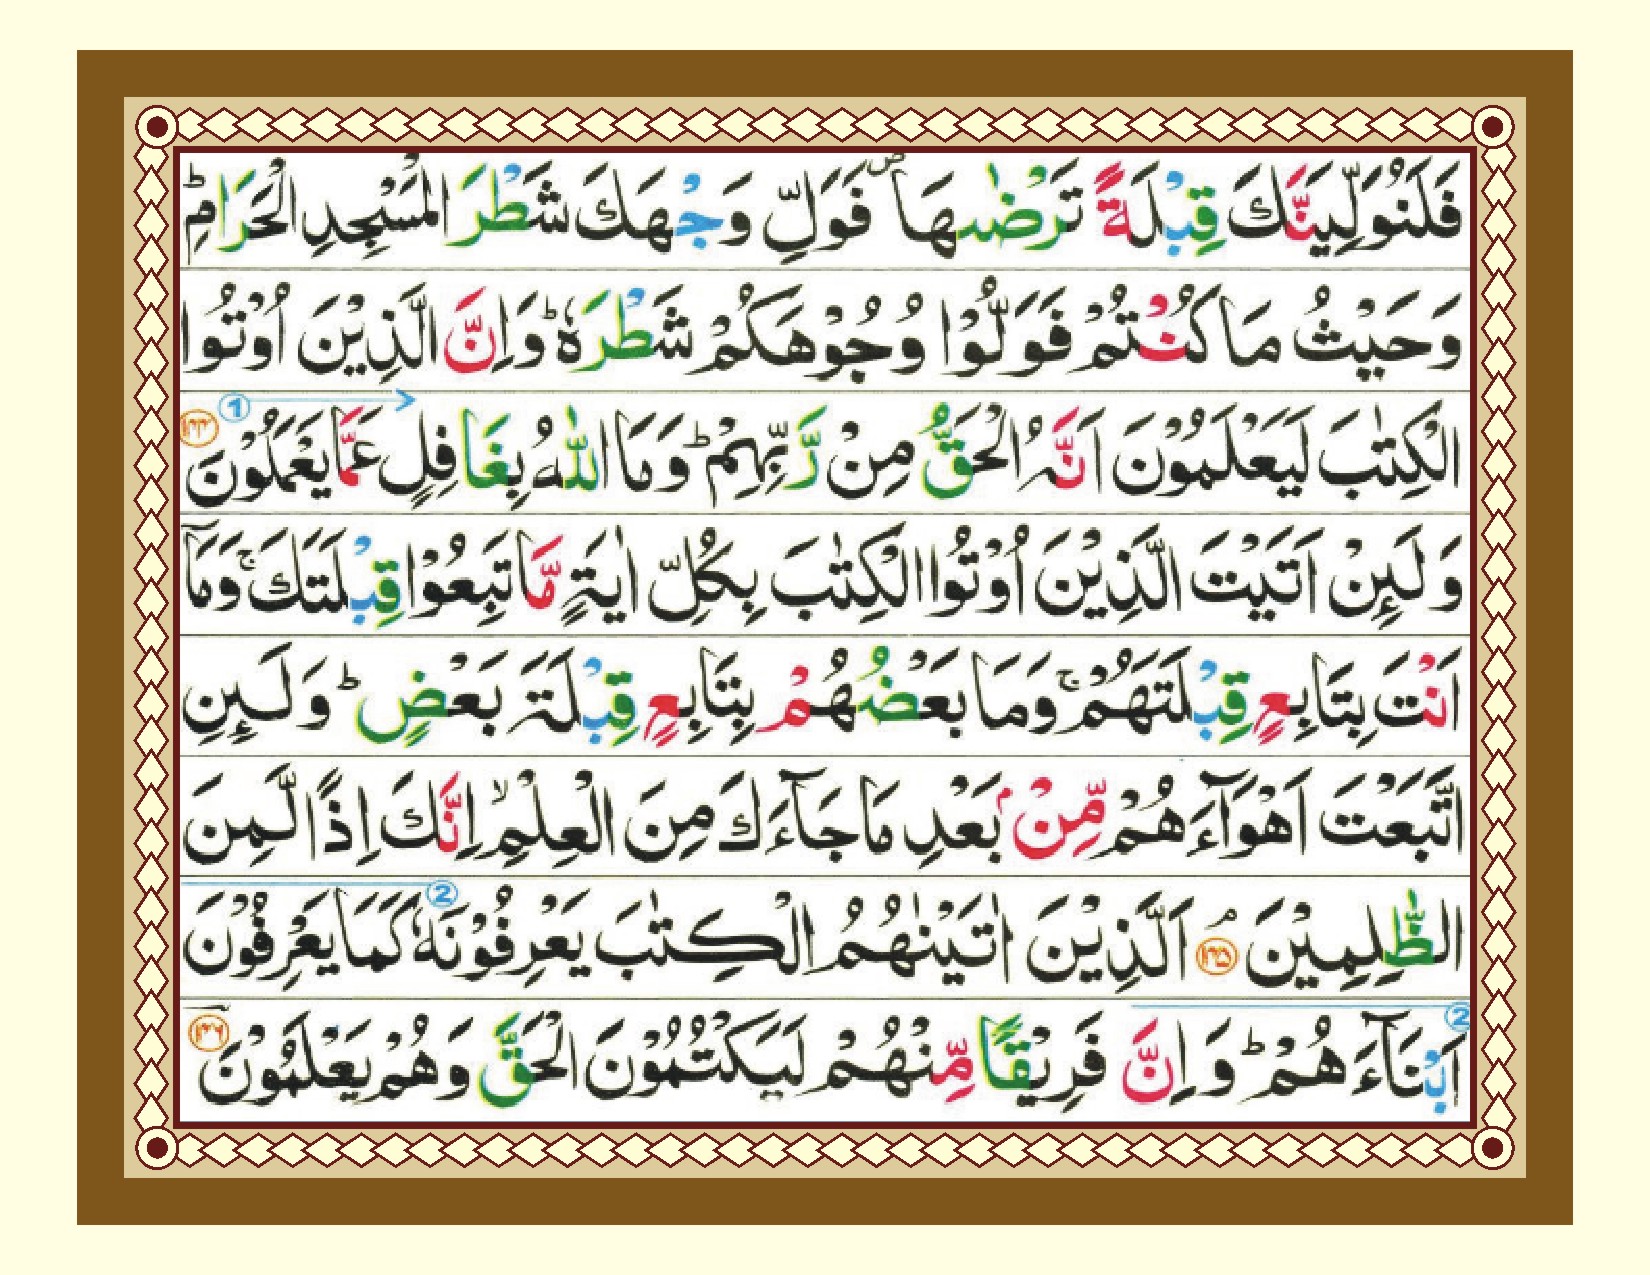 فَلَنُوَلِّيَنَّكَ قِبْلَةً تَرْضٰىهَا ۪ فَوَلِّ وَجْهَكَ شَطْرَ الْمَسْجِدِ الْحَرَامِ ؕ
وَحَيْثُ مَا كُنْتُمْ فَوَلُّوْا وُجُوْهَكُمْ شَطْرَهٗ ؕ وَاِنَّ الَّذِيْنَ اُوْتُوا
الْكِتٰبَ لَيَعْلَمُوْنَ اَنَّهُ الْحَقُّ مِنْ رَّبِّهِمْ ؕ وَمَا اللّٰهُ بِغَافِلٍ عَمَّا يَعْمَلُوْنَ ① ۱۴۴
وَلَىِٕنْ اَتَيْتَ الَّذِيْنَ اُوْتُوا الْكِتٰبَ بِكُلِّ اٰيَةٍ مَّا تَبِعُوْا قِبْلَتَكَ ۚ وَمَآ
اَنْتَ بِتَابِعٍ قِبْلَتَهُمْ ۚ وَمَا بَعْضُهُمْ بِتَابِعٍ قِبْلَةَ بَعْضٍ ؕ وَلَىِٕنِ
اتَّبَعْتَ اَهْوَآءَهُمْ مِّنْۢ بَعْدِ مَا جَآءَكَ مِنَ الْعِلْمِ ۙ اِنَّكَ اِذًا لَّمِنَ
الظّٰلِمِيْنَ ۘ ۱۴۵ اَلَّذِيْنَ اٰتَيْنٰهُمُ الْكِتٰبَ يَعْرِفُوْنَهٗ ② كَمَا يَعْرِفُوْنَ
② اَبْنَآءَهُمْ ؕ وَاِنَّ فَرِيْقًا مِّنْهُمْ لَيَكْتُمُوْنَ الْحَقَّ وَهُمْ يَعْلَمُوْنَ ۱۴۶